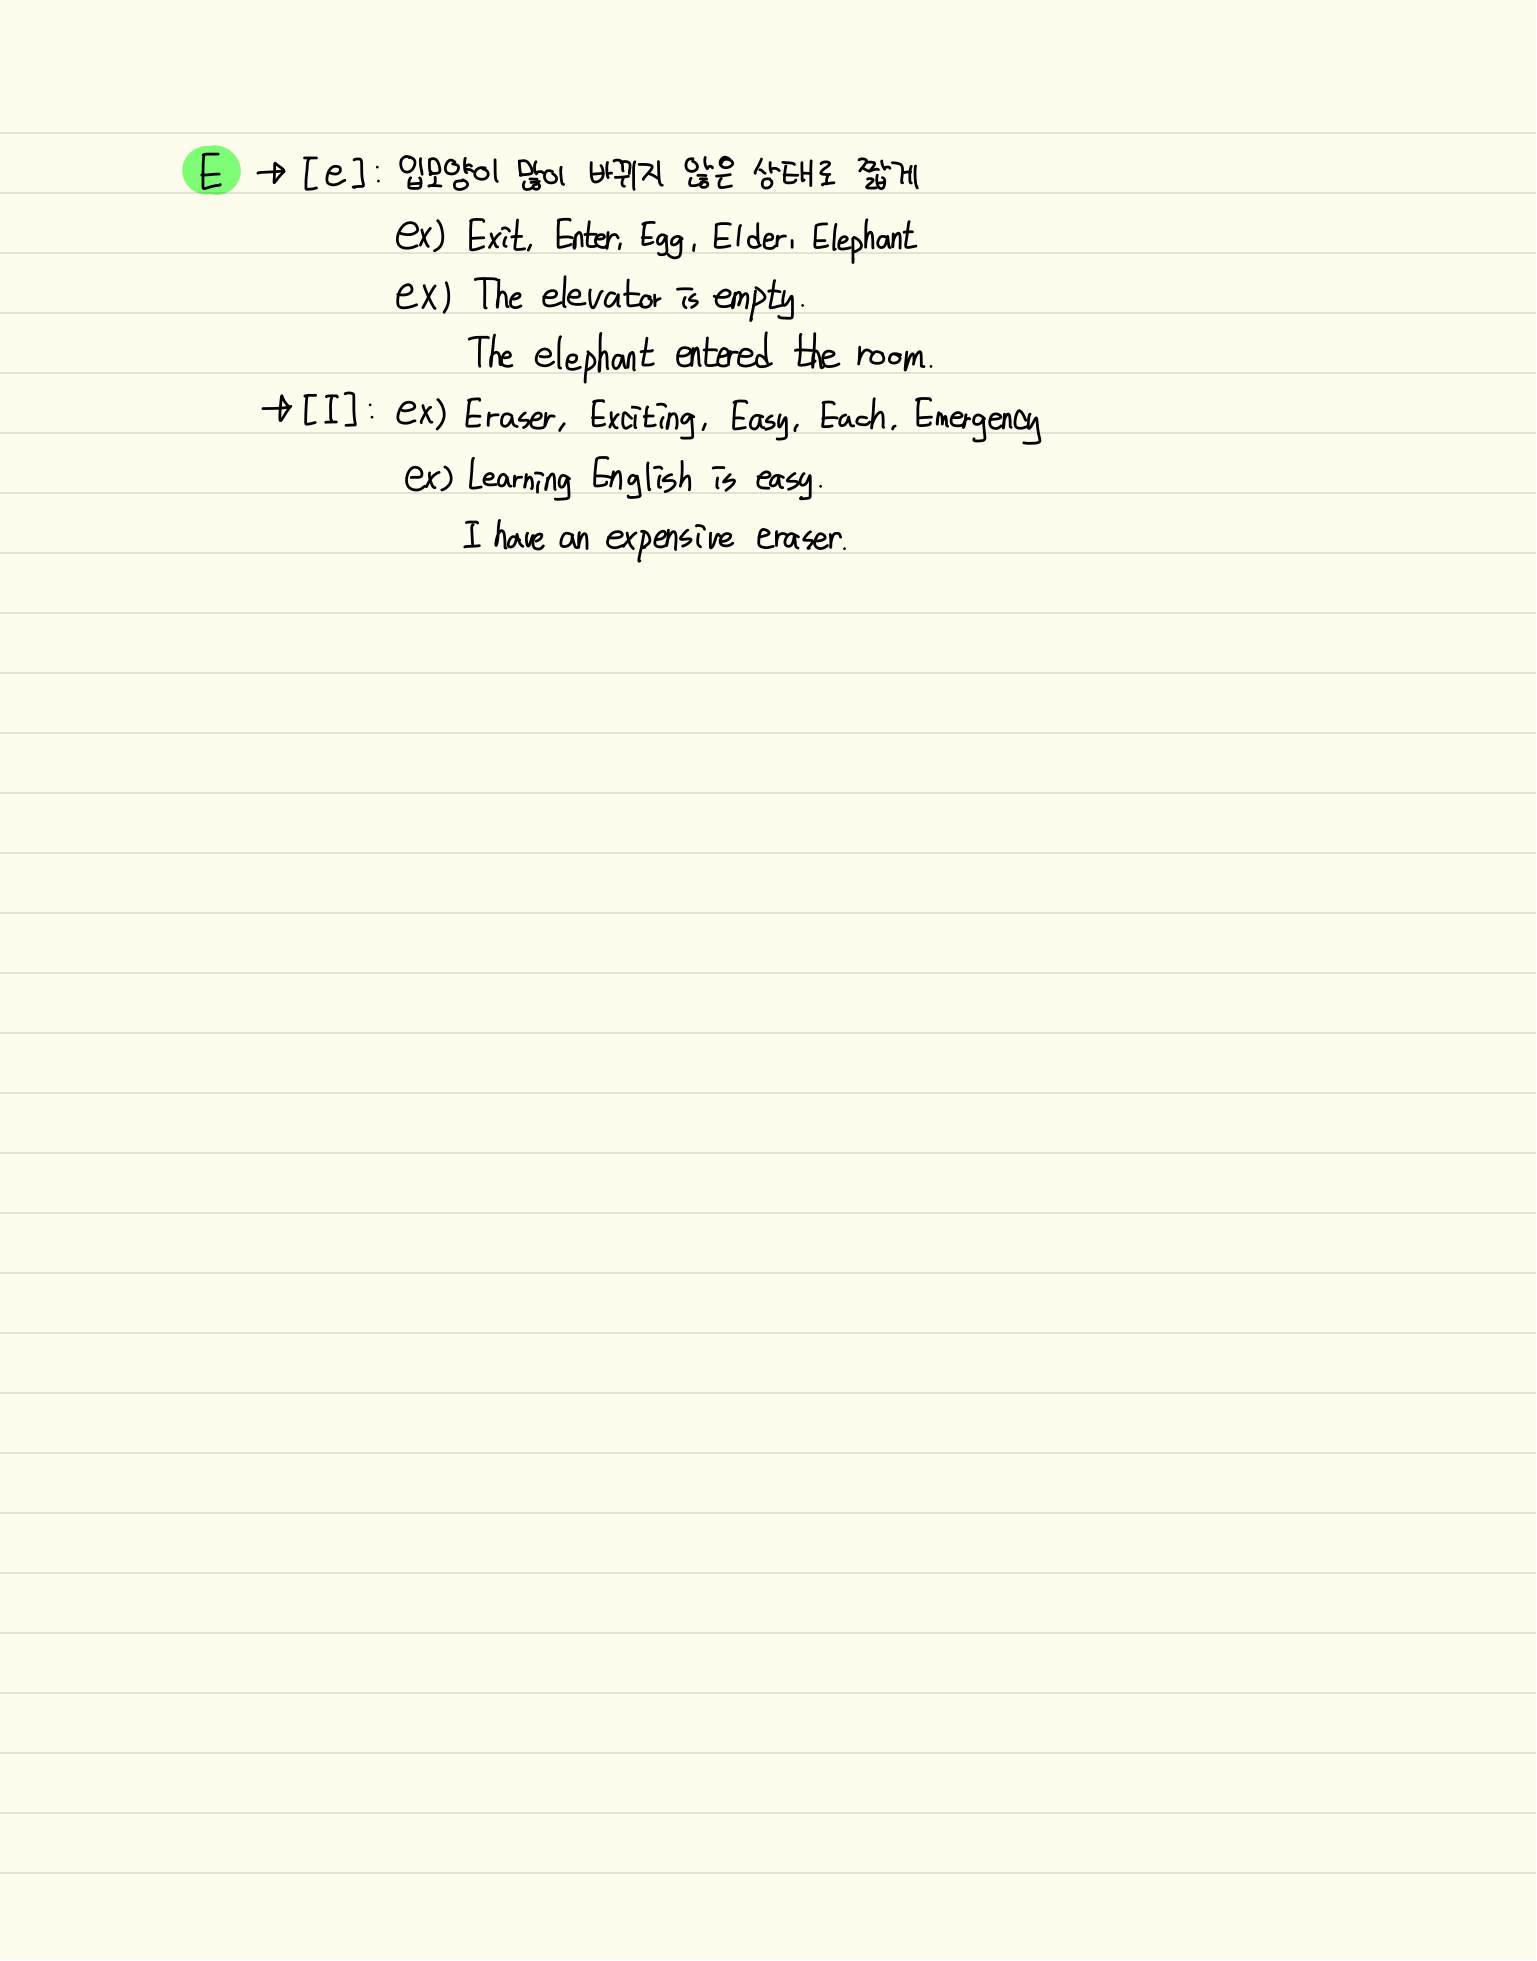 E → [e]: 입모양이 많이 바뀌지 않은 상태로 짧게
ex) Exit, Enter, Egg, Elder, Elephant
ex) The elevator is empty.
The elephant entered the room.
→ [I]: ex) Eraser, Exciting, Easy, Each, Emergency
ex) Learning English is easy.
I have an expensive eraser.